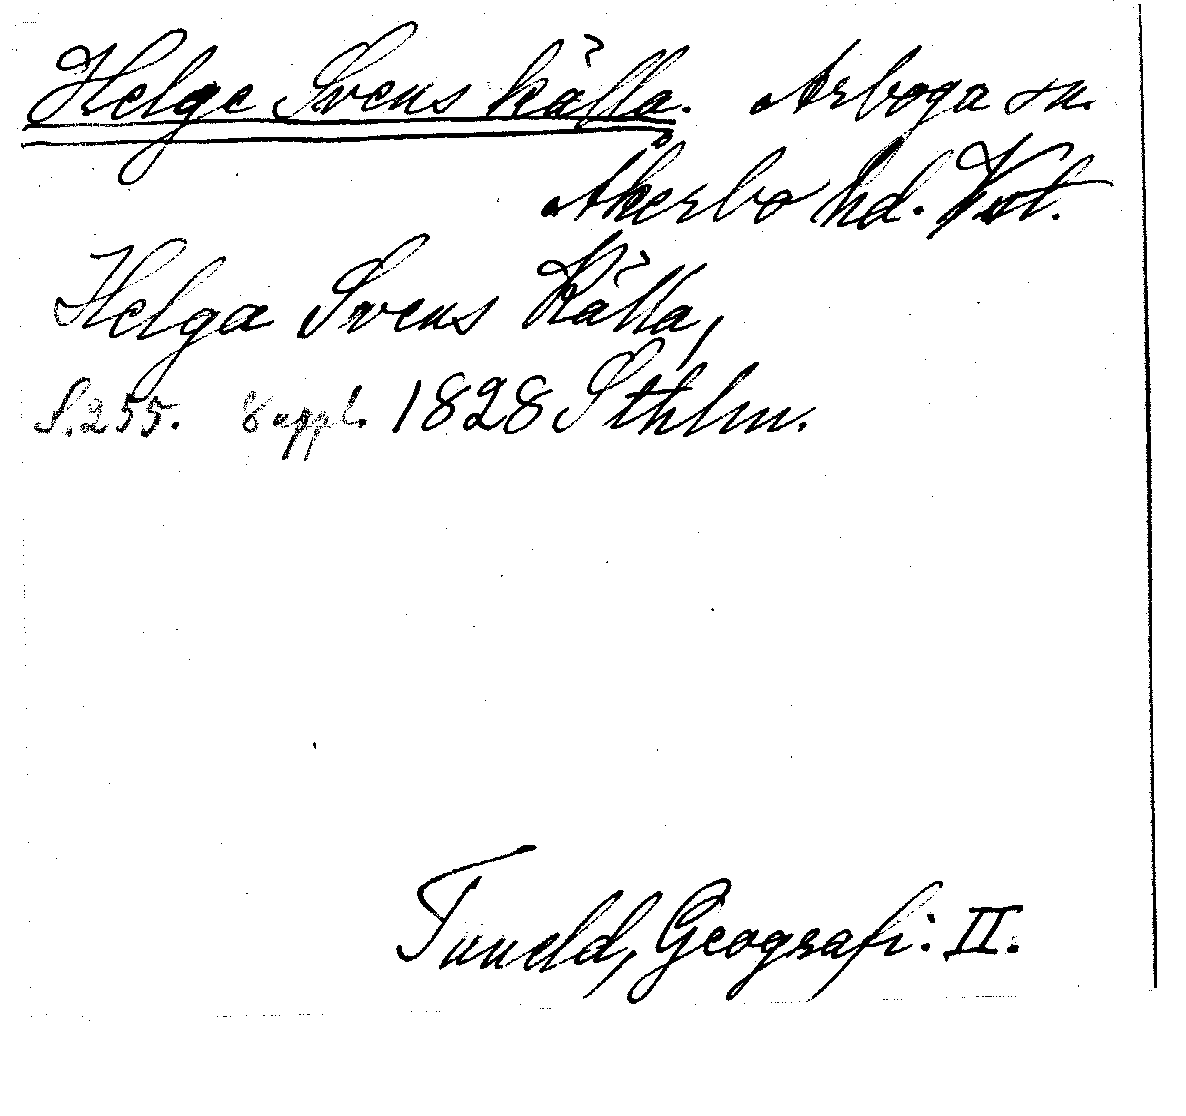 Helge Svens källa. Arboga sn.
Åkerbo hd. Vstl.
Helga Svens Källa,
S. 255. 8 uppl. 1828 Sthlm.
Tuneld, Geografi: II.